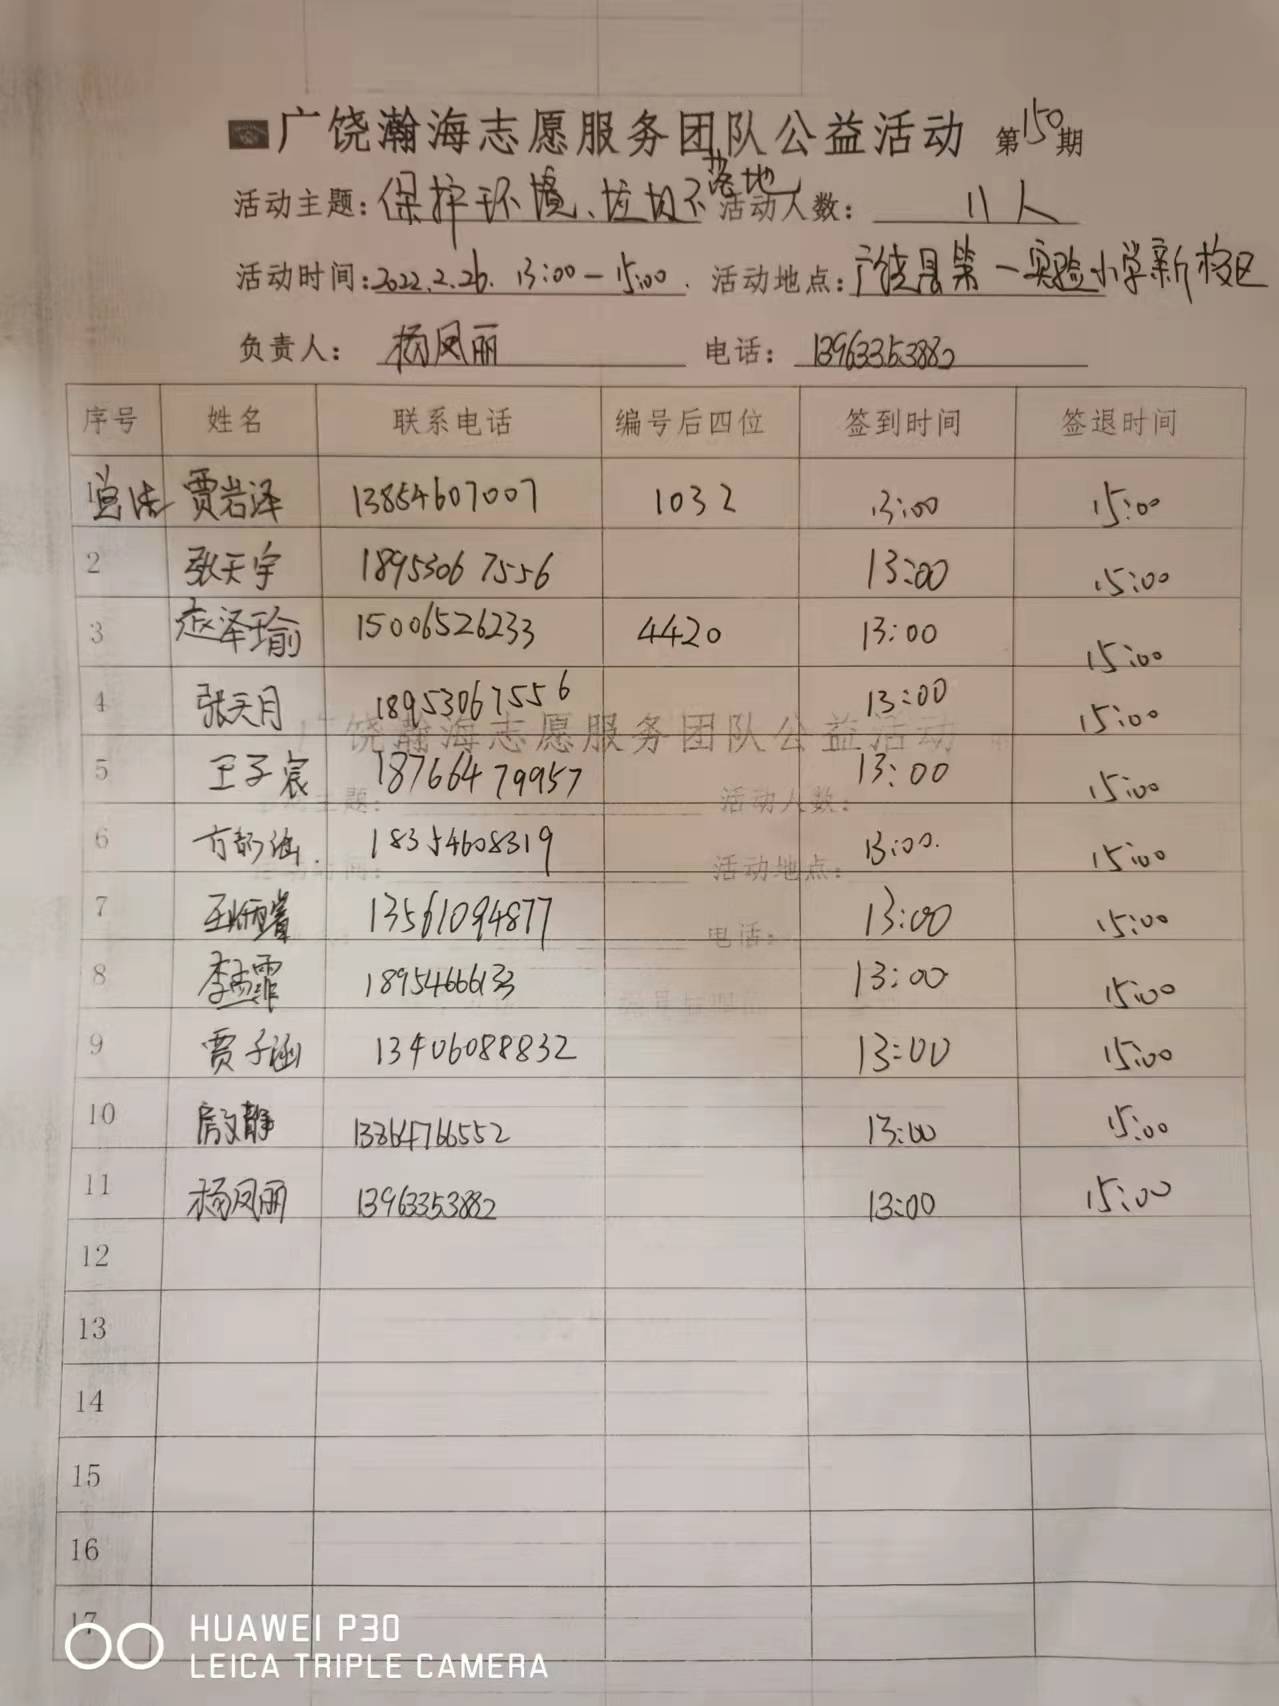 广饶瀚海志愿服务团队公益活动 第150期
活动主题:保护环境、垃圾不落地 活动人数: 11人
活动时间:2022.2.26. 13:00-15:00. 活动地点:广饶县第一实验小学新校区
负责人: 杨凤丽 电话: 13963353882
序号 姓名 联系电话 编号后四位 签到时间 签退时间
1 贾岩泽 13854607007 1032 13:00 15:00
2 张天宇 18953067556 13:00 15:00
3 赵泽瑜 15006526233 4420 13:00 15:00
4 张天月 18953067556 13:00 15:00
5 王子宸 18766479957 13:00 15:00
6 18354608319 13:00. 15:00
7 13561094877 13:00 15:00
8 李孟霏 18954666133 13:00 15:00
9 贾子涵 13406088832 13:00 15:00
10 13864766552 13:00 15:00
11 杨凤丽 13963353882 13:00 15:00
12
13
14
15
16
17
广饶瀚海志愿服务团队公益活动
活动主题: 活动人数:
活动时间: 活动地点:
电话:
HUAWEI P30
LEICA TRIPLE CAMERA